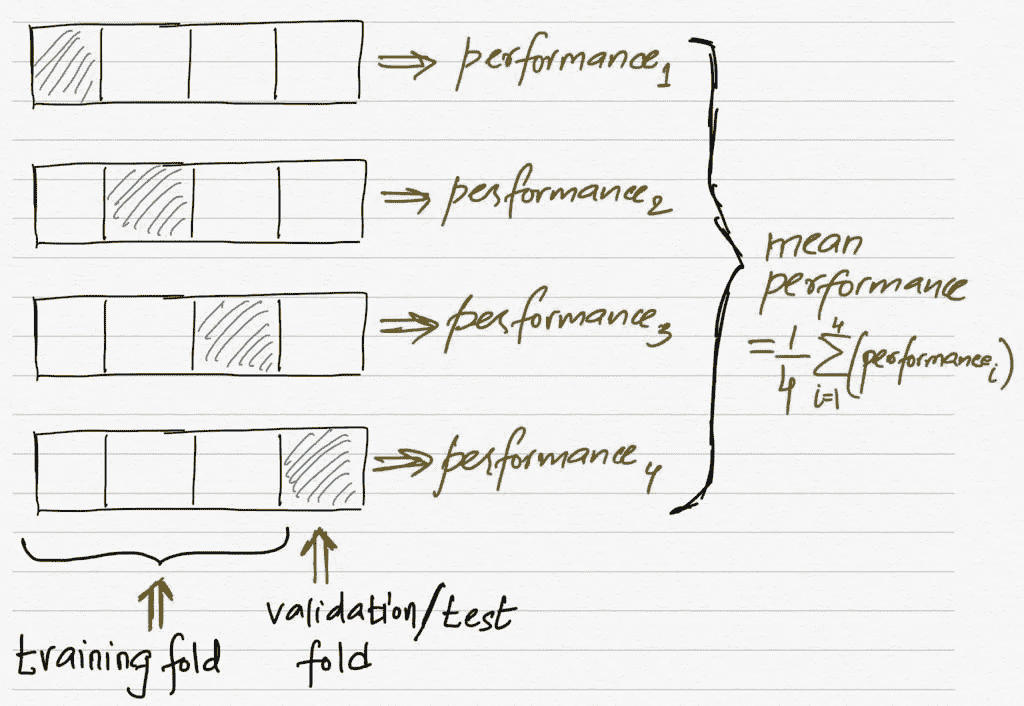 ⇒ performance₁
⇒ performance₂
⇒ performance₃
⇒ performance₄
mean
performance
= 1/4 ∑ᵢ₌₁⁴ (performanceᵢ)
training fold
validation/test
fold